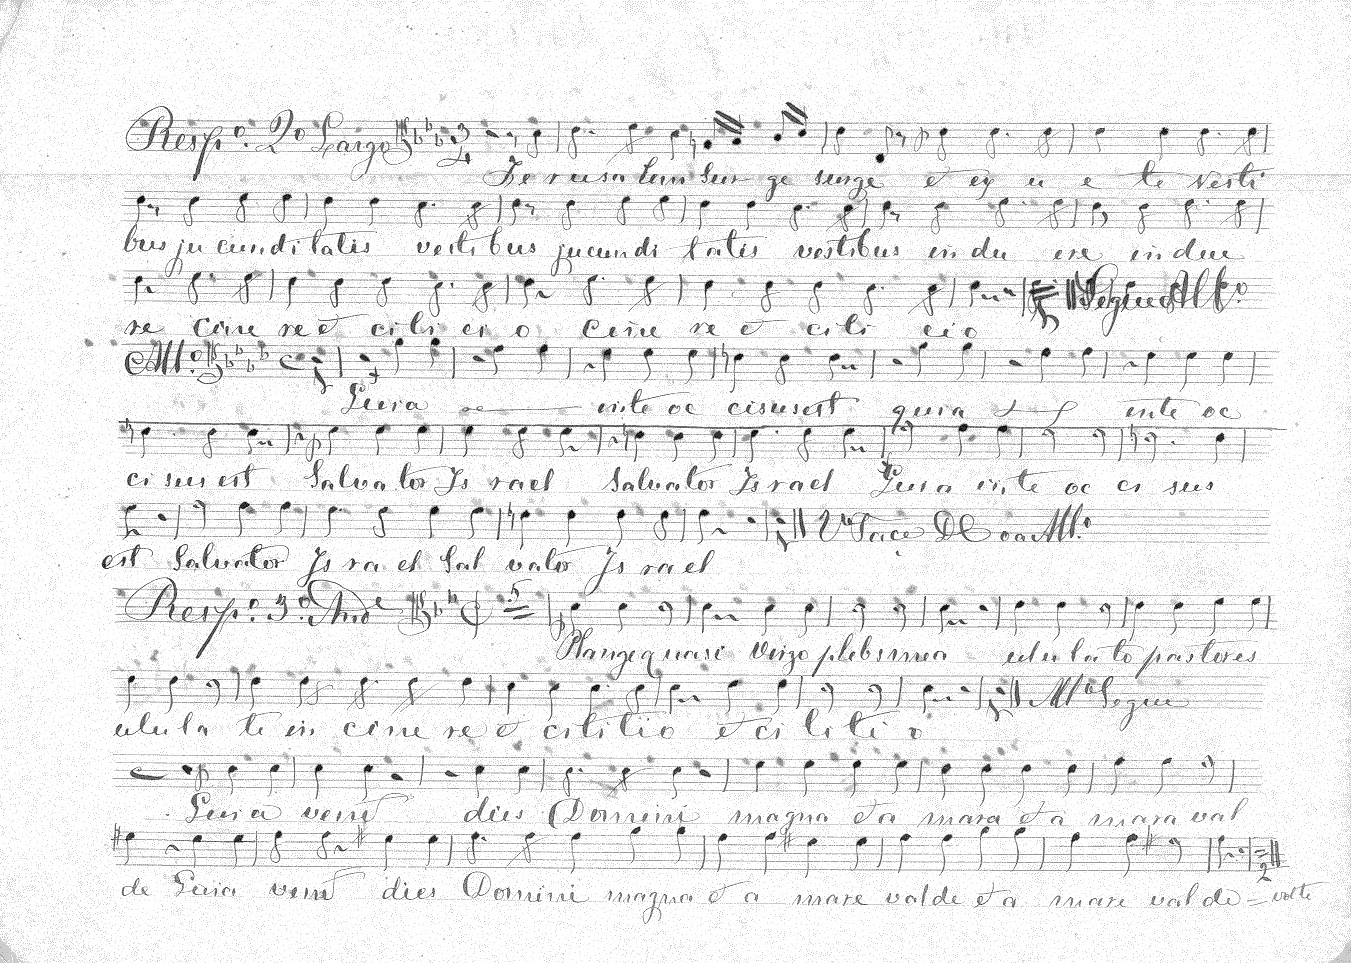 Respº. 2º Largo
Jerusalem Sur ge surge et ex u e te Vesti
bus ju cundi tatis vestibus jucundi tatis vestibus in du ere in due
re cine re et cili ci o cine re et cili cio
All.º
Quia in te oc cisusest quia in te oc
ci sus est Salvator Is rael Salvator Is rael Quia in te oc ci sus
est Salvator Is ra el Sal vator Is rael
Respº. 3º. And.e
Plange quasi virgo plebs mea ulu la te pastores
ulula te in cine re et cili tio et ci li ti o
All.º Segue
Quia venit dies Domini magna et a mara et a mara val
de Quia venit dies Domini magna et a mare valde et a mare val de = volte